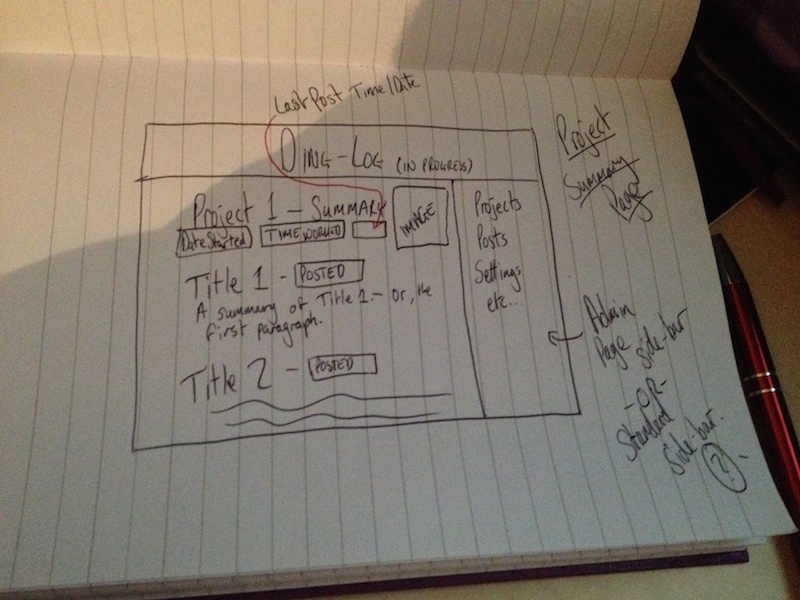 Last Post Time/Date
DING-LOG (IN PROGRESS)
Project 1 - SUMMARY
IMAGE
Date Started
TIME WORKED
Title 1 - POSTED
A summary of Title 1. - Or, the
first paragraph.
Title 2 - POSTED
Projects
Posts
Settings
etc...
Project
Summary
Page
Admin
Page Side-bar
-OR-
Standard
Side-bar.
?